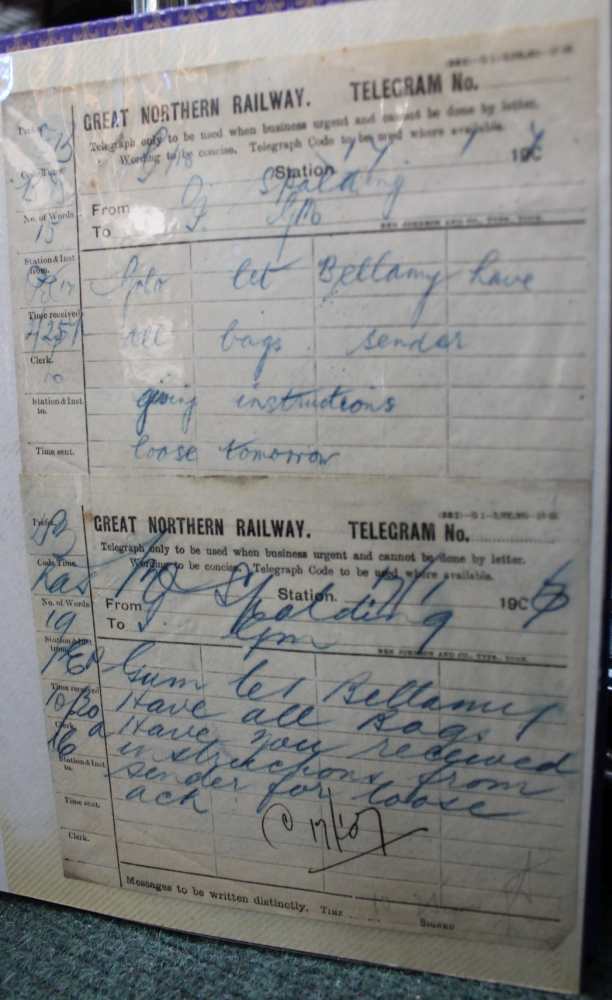 GREAT NORTHERN RAILWAY. TELEGRAM No.
Telegraph only to be used when business urgent and cannot be done by letter.
Wording to be concise. Telegraph Code to be used where available.
Station 17 1 190
From Spalding
To
No. of Words
15
Station & Inst. from.
let Bellamy have
Time received
all bags sender
Clerk.
10
giving instructions
Station & Inst. to.
loose tomorrow
Time sent.
GREAT NORTHERN RAILWAY. TELEGRAM No.
Telegraph only to be used when business urgent and cannot be done by letter.
Wording to be concise. Telegraph Code to be used where available.
Code Time.
Station. 17/1 190
From Spalding
No. of Words
19
To
Station & Inst. from.
Gum let Bellamy
Time received
10/20
Have all Bags
Clerk.
Have you received
16
instructions from
Station & Inst. to.
sender for loose
ack
Time sent.
17/1/07
Clerk.
Messages to be written distinctly. TIME
SIGNED